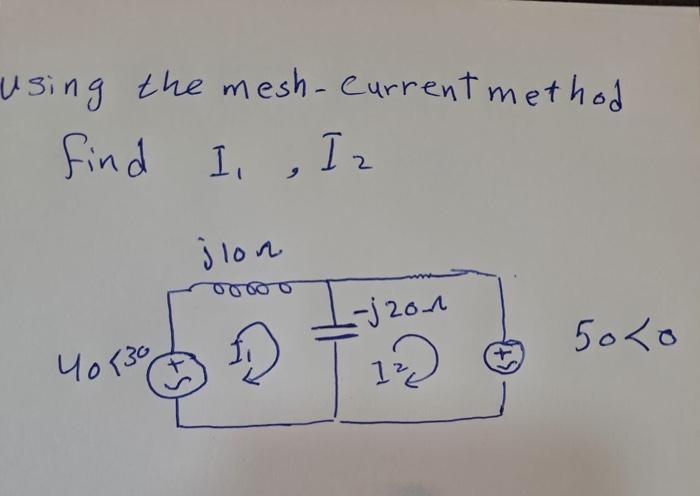 using the mesh-current method
find I₁, I₂
j10Ω
-j20Ω
40<30
I₁
I2
50<0